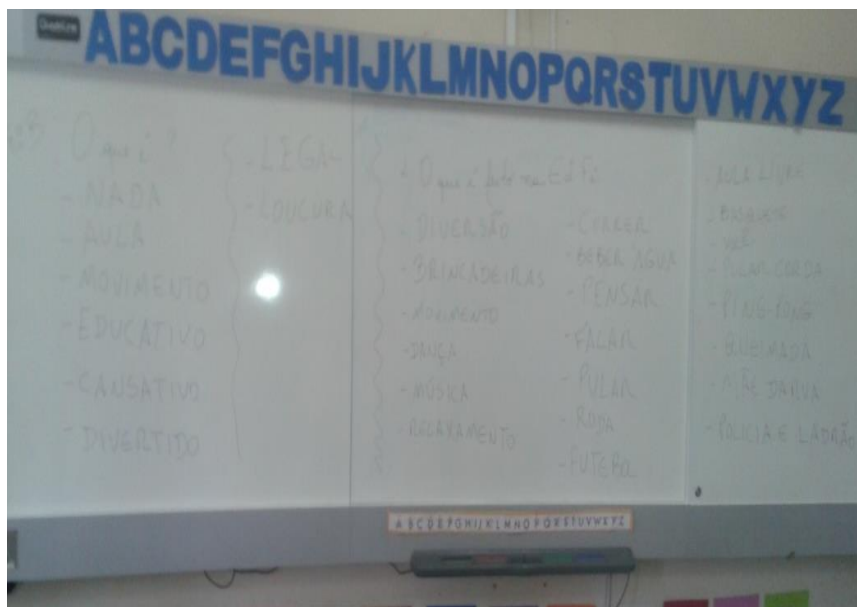 ABCDEFGHIJKLMNOPQRSTUVWXYZ
O que é?
- NADA
- AULA
- MOVIMENTO
- EDUCATIVO
- CANSATIVO
- DIVERTIDO
- LEGAL
- LOUCURA
O que é
- DIVERSÃO
- BRINCADEIRAS
- MOVIMENTO
- DANÇA
- MÚSICA
- RELAXAMENTO
- CORRER
- BEBER ÁGUA
- PENSAR
- FALAR
- PULAR
- RODA
- FUTEBOL
- AULA LIVRE
- BASQUETE
- PULAR CORDA
- PING-PONG
- QUEIMADA
- MÃE DA RUA
- POLICIA E LADRÃO
ABCDEFGHIJKLMNOPQRSTUVWXYZ